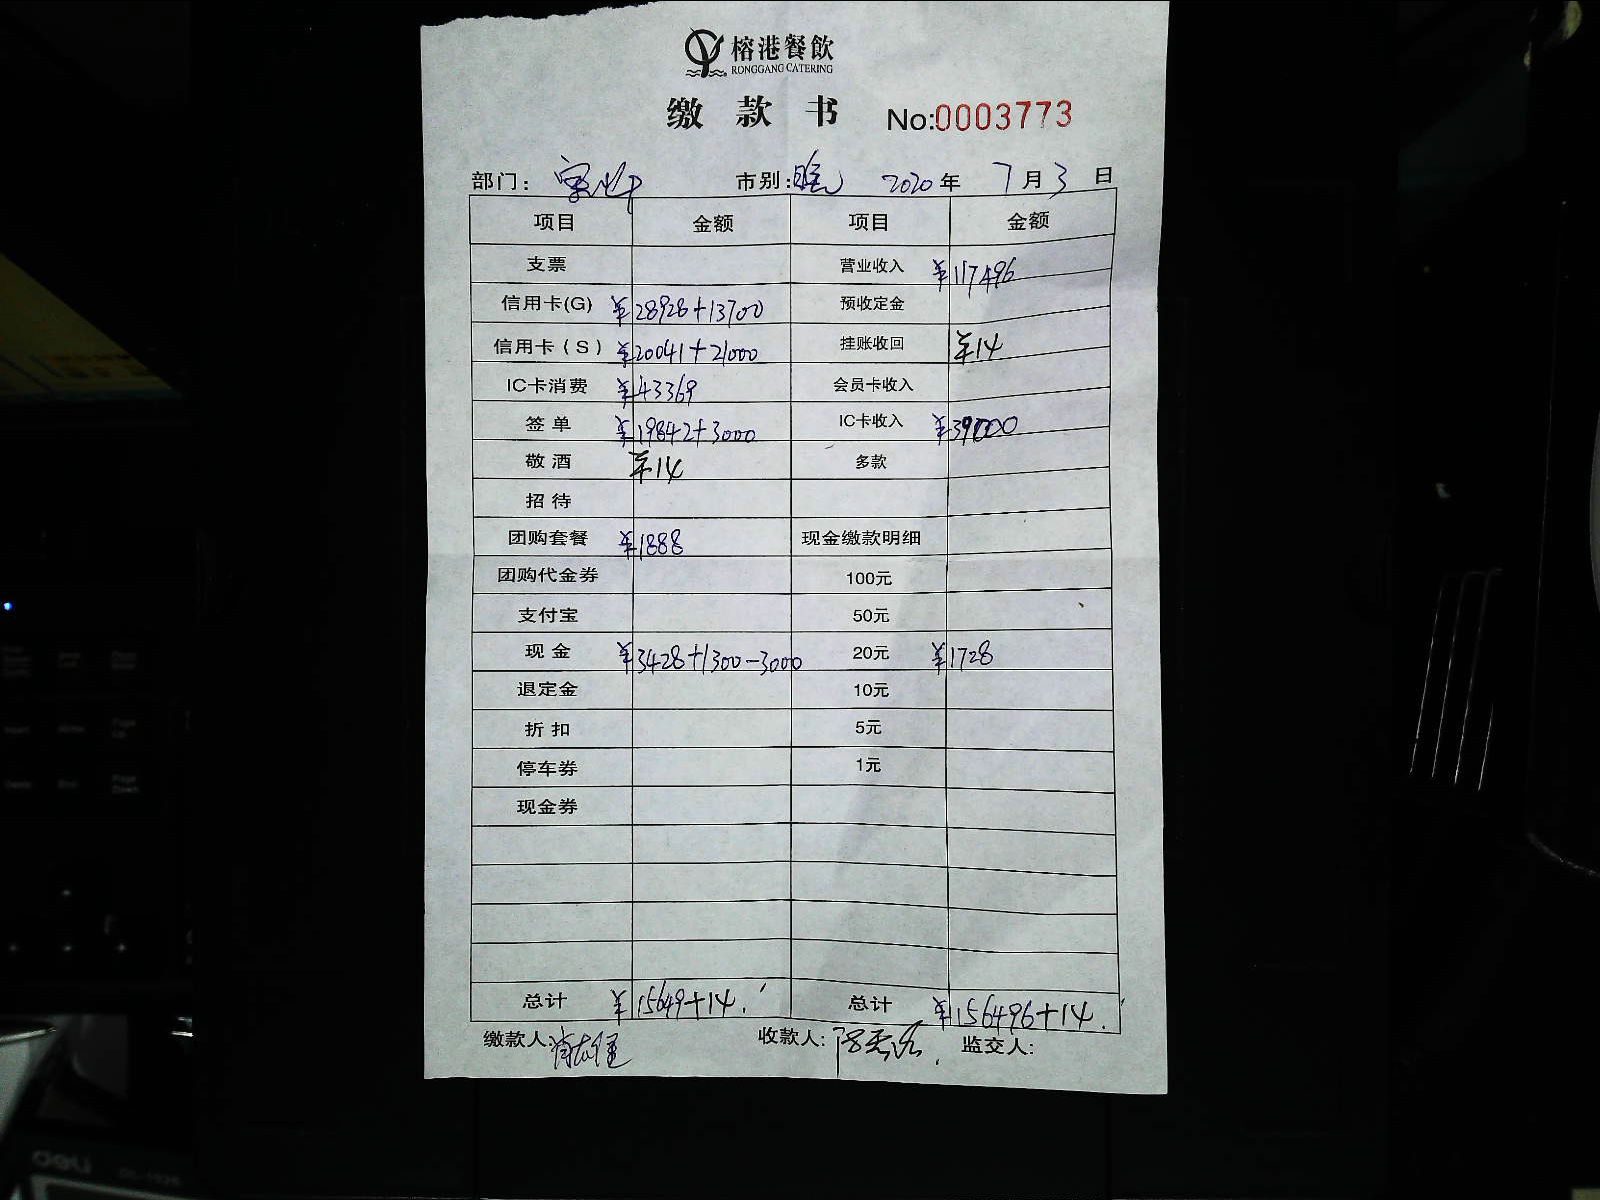 榕港餐飲
RONGGANG CATERING
缴款书 No:0003773
部门: 市别:晚 2020年 7月3日
项目 金额 项目 金额
支票 营业收入 ¥117496
信用卡(G) ¥28928+13700 预收定金
信用卡(S) ¥20041+21000 挂账收回 ¥14
IC卡消费 ¥43369 会员卡收入
签单 ¥19842+3000 IC卡收入 ¥39000
敬酒 ¥14 多款
招待
团购套餐 ¥1888 现金缴款明细
团购代金券 100元
支付宝 50元
现金 ¥3428+1300-3000 20元 ¥1728
退定金 10元
折扣 5元
停车券 1元
现金券
总计 ¥15649+14. 总计 ¥156496+14.
缴款人: 收款人: 监交人:
deli